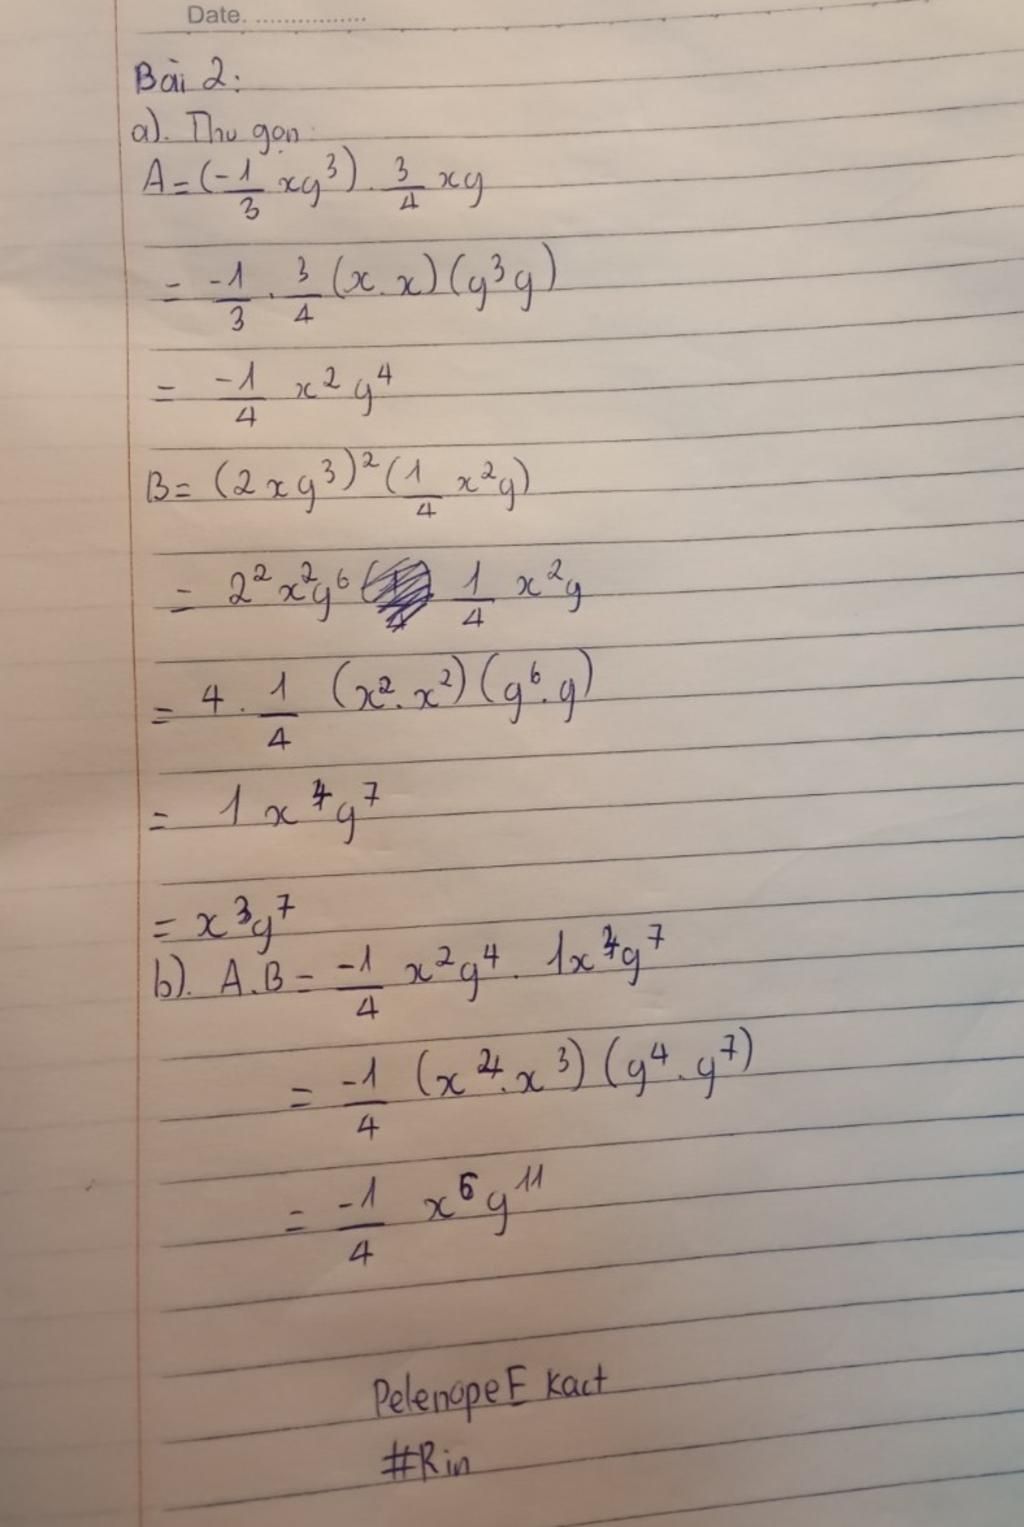 Date. ................
Bài 2:
a). Thu gọn:
A = (-1/3 xy³) . 3/4 xy
= -1/3 . 3/4 (x.x) (y³y)
= -1/4 x²y⁴
B = (2xy³)² (1/4 x²y)
= 2²x²y⁶ 1/4 x²y
= 4 . 1/4 (x².x²) (y⁶.y)
= 1 x⁴y⁷
= x³y⁷
b). A.B = -1/4 x²y⁴ . 1x y⁷
= -1/4 (x .x³) (y⁴.y⁷)
= -1/4 x y¹¹
PelenopeE Kact
#Rin